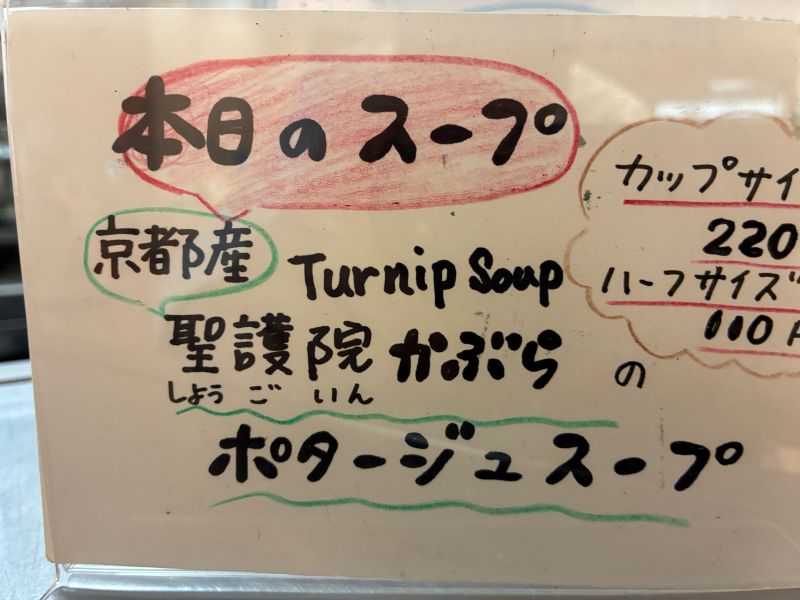 本日のスープ
京都産
Turnip Soup
聖護院かぶらの
しょうごいん
ポタージュスープ
カップサイ
220
ハーフサイズ
110